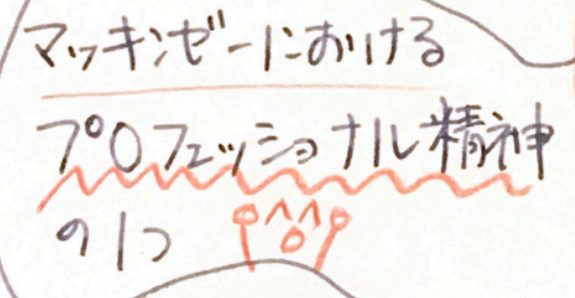 マッキンゼーにおける
プロフェッショナル精神
の1つ